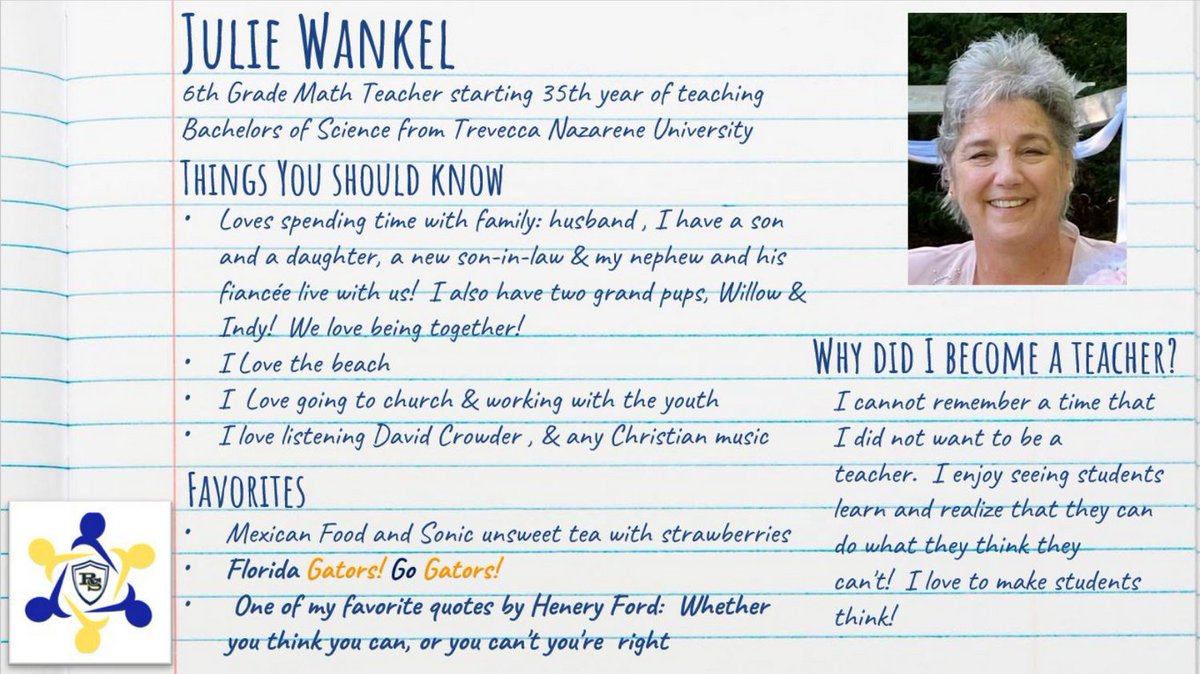 JULIE WANKEL
6th Grade Math Teacher starting 35th year of teaching
Bachelors of Science from Trevecca Nazarene University
THINGS YOU SHOULD KNOW
• Loves spending time with family: husband , I have a son
and a daughter, a new son-in-law & my nephew and his
fiancée live with us! I also have two grand pups, Willow &
Indy! We love being together!
• I Love the beach
• I Love going to church & working with the youth
• I love listening David Crowder , & any Christian music
FAVORITES
• Mexican Food and Sonic unsweet tea with strawberries
• Florida Gators! Go Gators!
• One of my favorite quotes by Henery Ford: Whether
you think you can, or you can't you're right
WHY DID I BECOME A TEACHER?
I cannot remember a time that
I did not want to be a
teacher. I enjoy seeing students
learn and realize that they can
do what they think they
can't! I love to make students
think!
RS